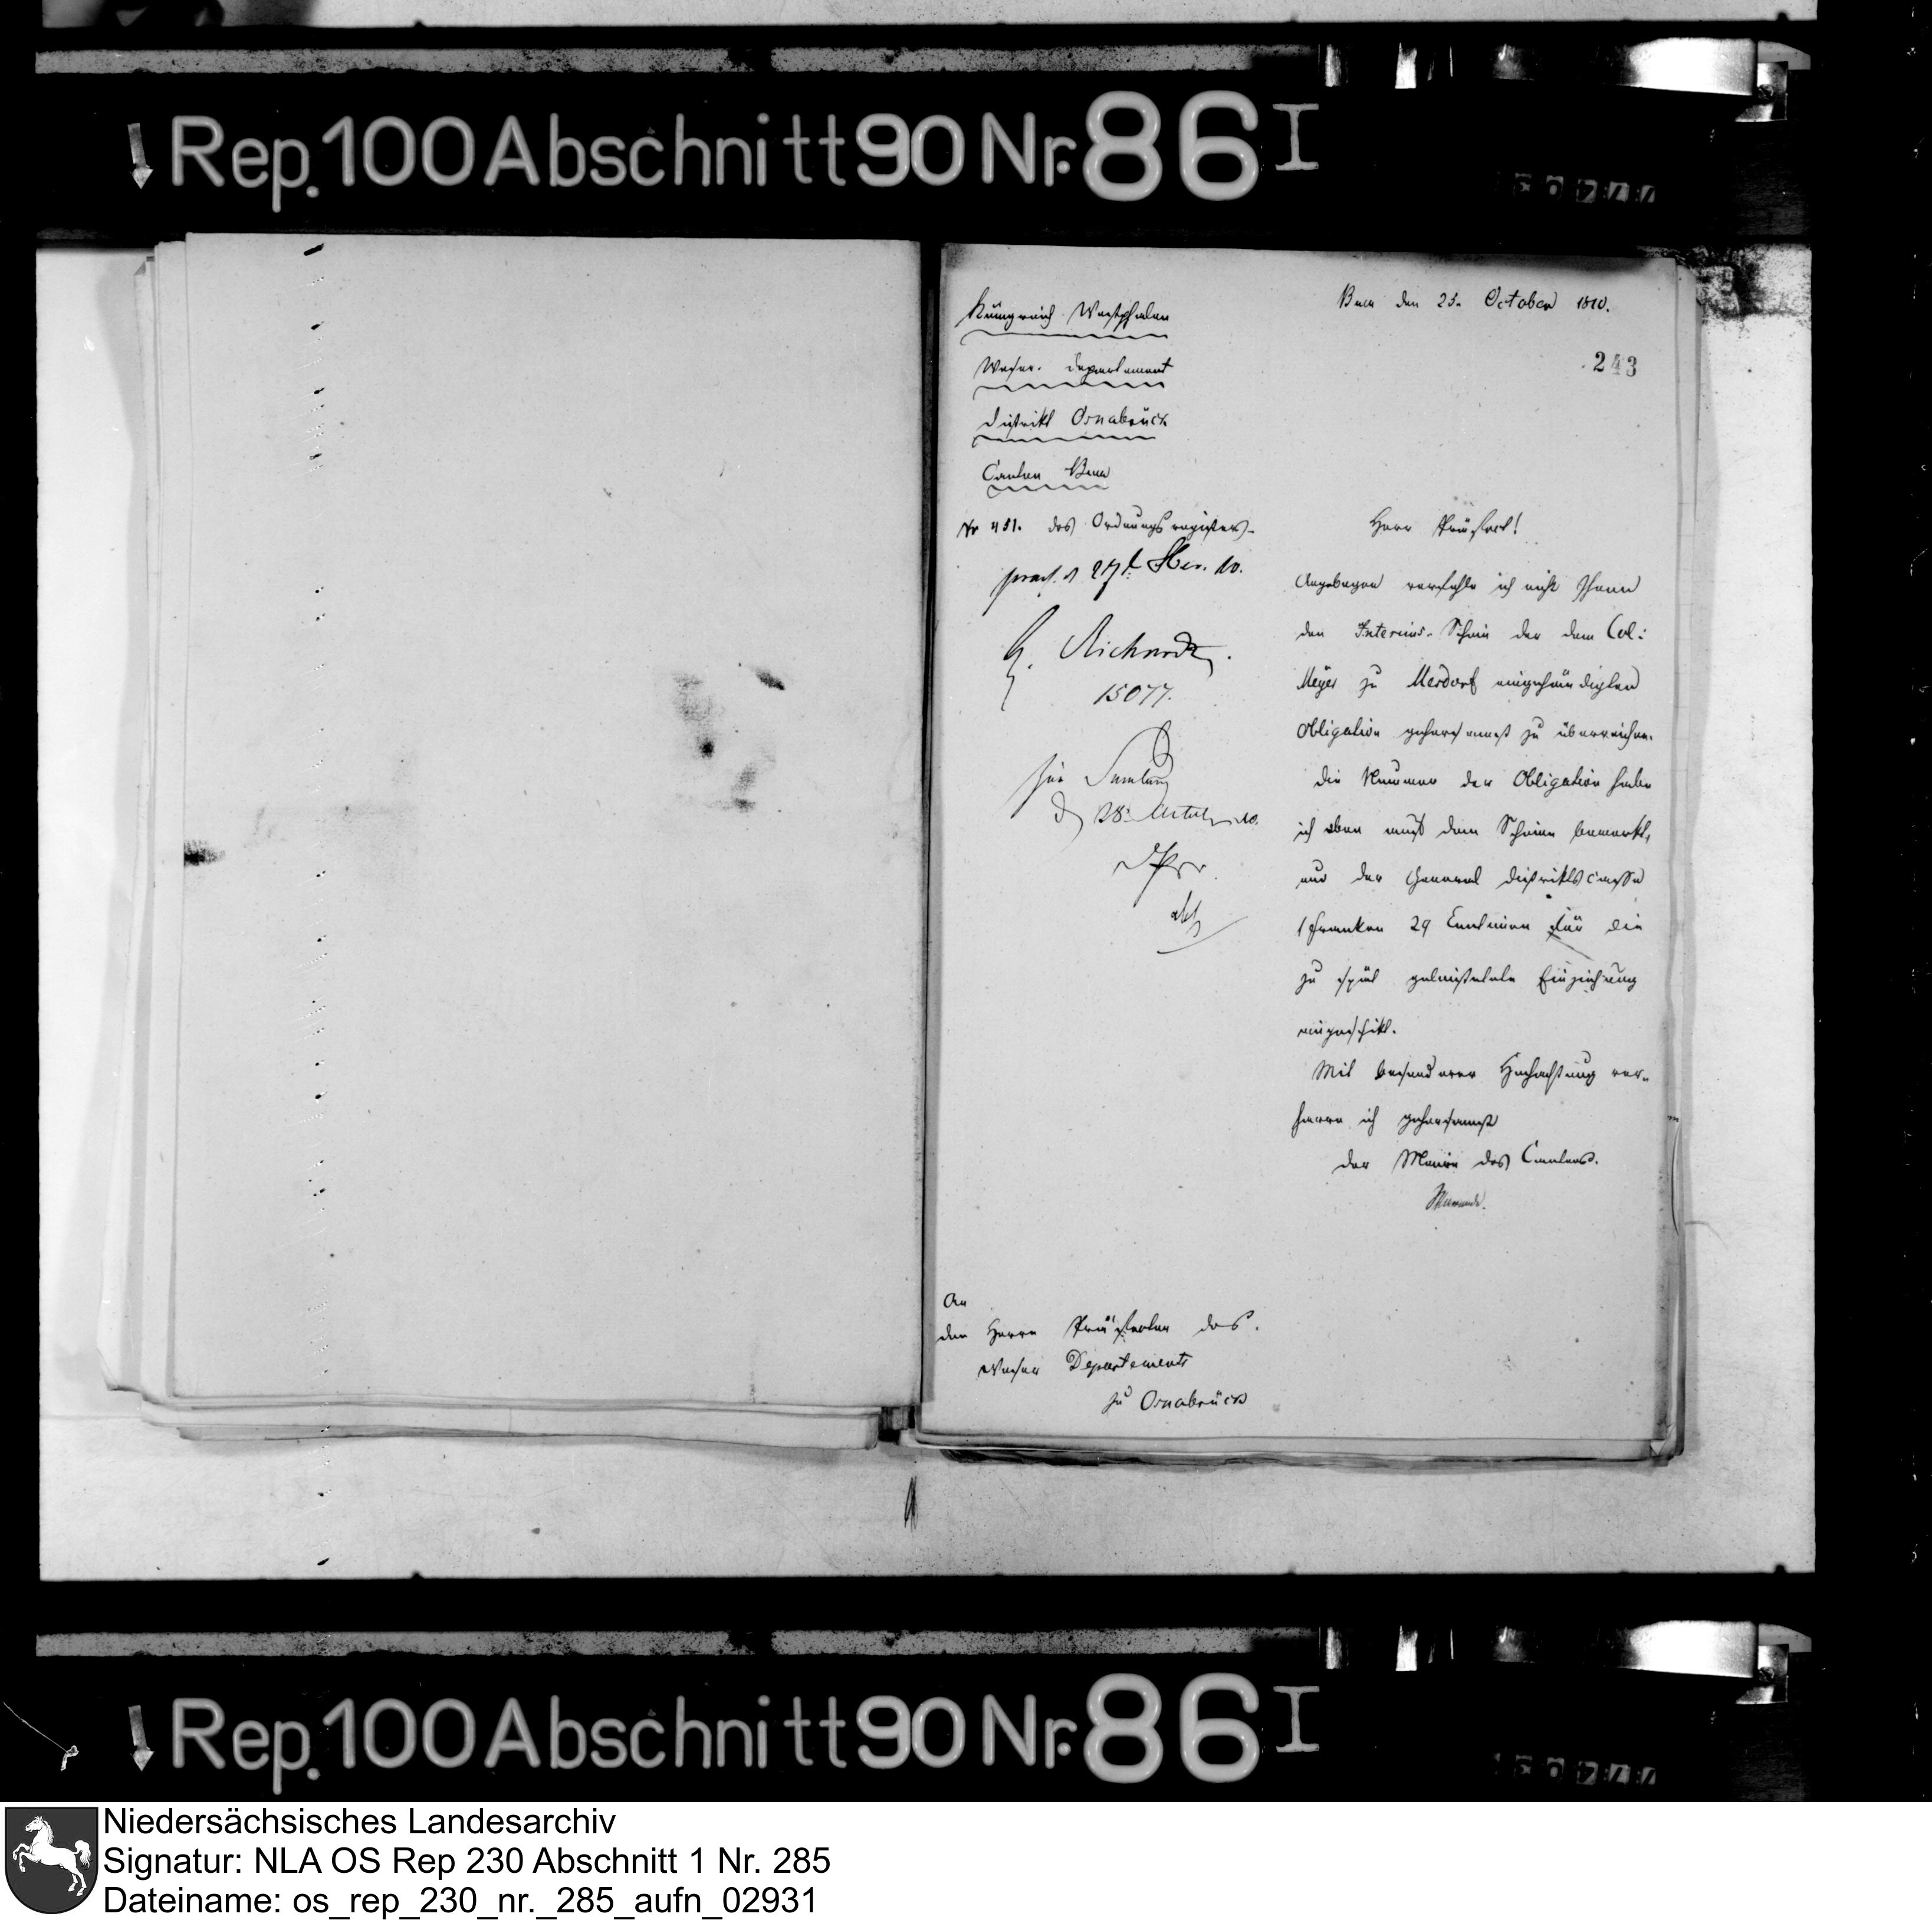 Rep. 100 Abschnitt 90 Nr. 86 I
Königreich Westphalen
Weser. Departement
District Osnabrück
Canton Buer
Buer den 25. October 1810.
243
Nr 451. des Ordnungsregisters.
praes. d 27t 8ber. 10.
G. Richard
15077.
zur Samlung
d 28. October 10.
Herr Präfect!
Angebogen verfehle ich nicht Ihnen
den Interims-Schein der dem Col:
Meyer zu Mersdorf eingehändigten
Obligation gehorsamst zu überreichen.
Die Nummer der Obligation habe
ich oben auf dem Scheine bemerkt,
und der General Districtscasse
1 Franken 29 Centimen für die
zu spät geleistetete Einziehung
eingeschikt.
Mit besonderer Hochachtung ver-
harre ich gehorsamst
der Maire des Cantons.
An
den Herrn Präfecten des
Weser Departements
zu Osnabrück
Rep. 100 Abschnitt 90 Nr. 86 I
Niedersächsisches Landesarchiv
Signatur: NLA OS Rep 230 Abschnitt 1 Nr. 285
Dateiname: os_rep_230_nr._285_aufn_02931